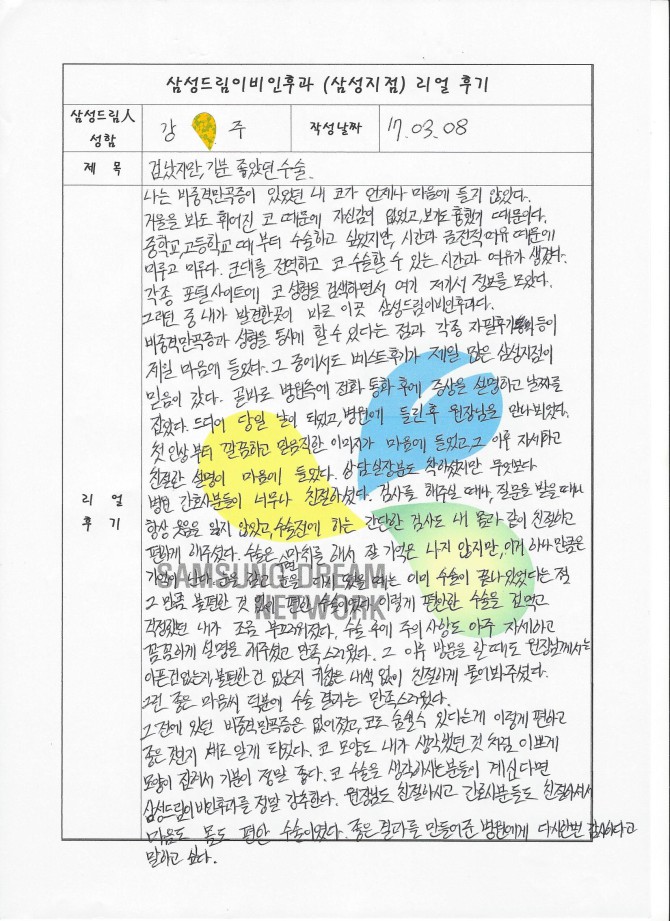 삼성드림이비인후과 (삼성지점) 리얼 후기
삼성드림人 성함
강 주
작성날짜
17.03.08
제 목
겁났지만, 기분 좋았던 수술.
리 얼 후 기
나는 비중격만곡증이 있었던 내 코가 언제나 마음에 들지 않았다.
거울을 봐도 휘어진 코 때문에 자신감이 없었고, 보기도 흉했기 때문이다.
중학교, 고등학교 때 부터 수술하고 싶었지만, 시간과 금전적 여유 때문에
미루고 미루다. 군대를 전역하고 코 수술할 수 있는 시간과 여유가 생겼다.
각종 포털사이트에 코 성형을 검색하면서 여기 저기서 정보를 모았다.
그러던 중 내가 발견한곳이 바로 이곳 삼성드림이비인후과다.
비중격만곡증과 성형을 동시에 할 수 있다는 점과 각종 자필후기 등이
제일 마음에 들었다. 그 중에서도 베스트후기가 제일 많은 삼성지점이
믿음이 갔다. 곧바로 병원측에 전화 통화 후에 증상을 설명하고 날짜를
잡았다. 드디어 당일 날이 되었고, 병원에 들린후 원장님을 만나뵈었다.
첫 인상부터 깔끔하고 믿음직한 이미지가 마음에 들었고, 그 이후 자세하고
친절한 설명이 마음에 들었다. 상담실장분도 착하셨지만 무엇보다
병원 간호사분들이 너무나 친절하셨다. 검사를 해주실 때나, 질문을 받을 때나
항상 웃음을 잃지 않았고, 수술전에 하는 간단한 검사도 내 몸과 같이 친절하고
편하게 해주셨다. 수술은 마취를 해서 잘 기억은 나지 않지만, 이거 하나 만큼은
기억이 난다. 눈을 감고 눈을 다시 떴을 때는 이미 수술이 끝나있었다는 점
그 만큼 불편한 것 없이 편한 수술이었다. 이렇게 편안한 수술을 겁먹고
걱정했던 내가 조금 부끄러워졌다. 수술 후에 주의 사항도 아주 자세하고
꼼꼼하게 설명을 해주셨고 만족스러웠다. 그 이후 방문을 할 때도 원장님께서는
아픈건 없는지, 불편한 건 없는지 귀찮은 내색 없이 친절하게 물어봐주셨다.
그런 좋은 마음씨 덕분에 수술 결과는 만족스러웠다.
그전에 있던 비중격만곡증은 없어졌고, 코로 숨쉴수 있다는게 이렇게 편하고
좋은것인지 새로 알게 되었다. 코 모양도 내가 생각했던 것 처럼 이쁘게
모양이 잡혀서 기분이 정말 좋다. 코 수술을 생각하시는분들이 계신다면
삼성드림이비인후과를 정말 강추한다. 원장님도 친절하시고 간호사분들도 친절하셔서
마음도 몸도 편안 수술이었다. 좋은 결과를 만들어준 병원에게 다시한번 감사하다고
말하고 싶다.
SAMSUNG DREAM
NETWORK